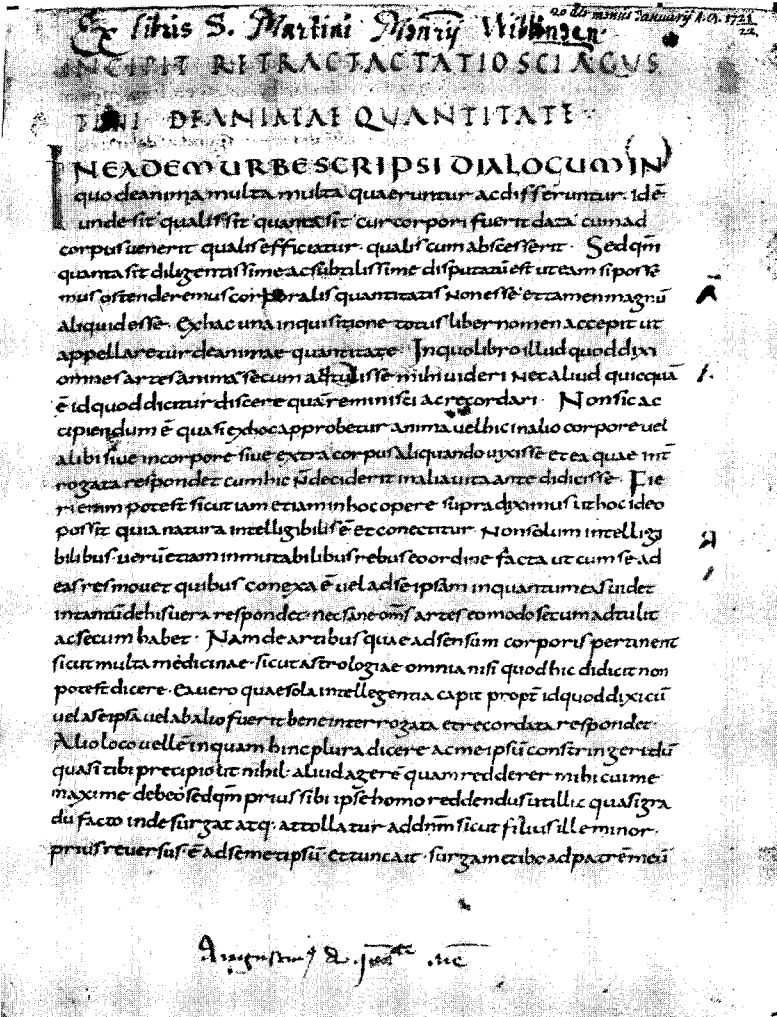 Ex libris S. Martini Monrij Wiblingen.
20 die mensis Januarij A.O. 1721
22
INCIPIT RETRACTACTATIO SCI AGUS
TINI DE ANIMAE QUANTITATE
IN EADEM URBE SCRIPSI DIALOGUM IN
quo de anima multa multa quaeruntur ac differuntur. Idē
unde sit qualis sit quanta sit cur corpori fuerit data cum ad
corpus uenerit qualis efficiatur. qualis cum abscesserit. Sed qm̄
quanta sit diligentissime ac subtilissime disputatū est ut eam si posse
mus ostenderemus corporalis quantitatis non esse et tamen magnū
aliquid esse. Ex hac una inquisitione totus liber nomen accepit ut
appellaretur de animae quantitate. In quo libro illud quod dixi
omnes artes anima secum adtulisse mihi uideri nec aliud quicquā
ē id quod dicitur discere quā reminisci ac recordari. Non sic ac
cipiendum ē quasi ex hoc approbetur anima uel hic in alio corpore uel
alibi siue in corpore siue extra corpus aliquando uixisse et ea quae int̄
rogata respondet cum hic n̄ deciderit in alia uita ante didicisse. Fie
ri enim potest sicut iam etiam in hoc opere supra diximus ut hoc ideo
possit quia natura intelligibilis ē et conectitur. Non solum intelligi
bilibus. uerū etiam inmutabilibus rebus eo ordine facta ut cum se ad
eas res mouet quibus conexa ē uel ad se ipsam inquantum eas uidet
intantū de his uera respondet. nec sane om̄s artes eo modo secum adtulit
ac secum habet. Nam de artibus quae ad sensum corporis pertinent
sicut multa medicinae. sicut astrologiae omnia nisi quod hic didicit non
potest dicere. Ea uero quae sola intellegentia capit propt̄ id quod dixi cū
uel a se ipsa uel ab alio fuerit bene interrogata et recordata respondet.
Alio loco uellē inquam hinc plura dicere ac me ipsū constringere dū
quasi tibi precipio ut nihil. aliud agerē quam redderer mihi cui me
maxime debeo sed qm̄ prius sibi ipse homo reddendus ut illic quasi gra
du facto inde surgat atq. attollatur ad dnm̄ sicut filius ille minor.
prius reuersus ē ad semet ipsū et tunc ait. surgam et ibo ad patrē meū
A
1.